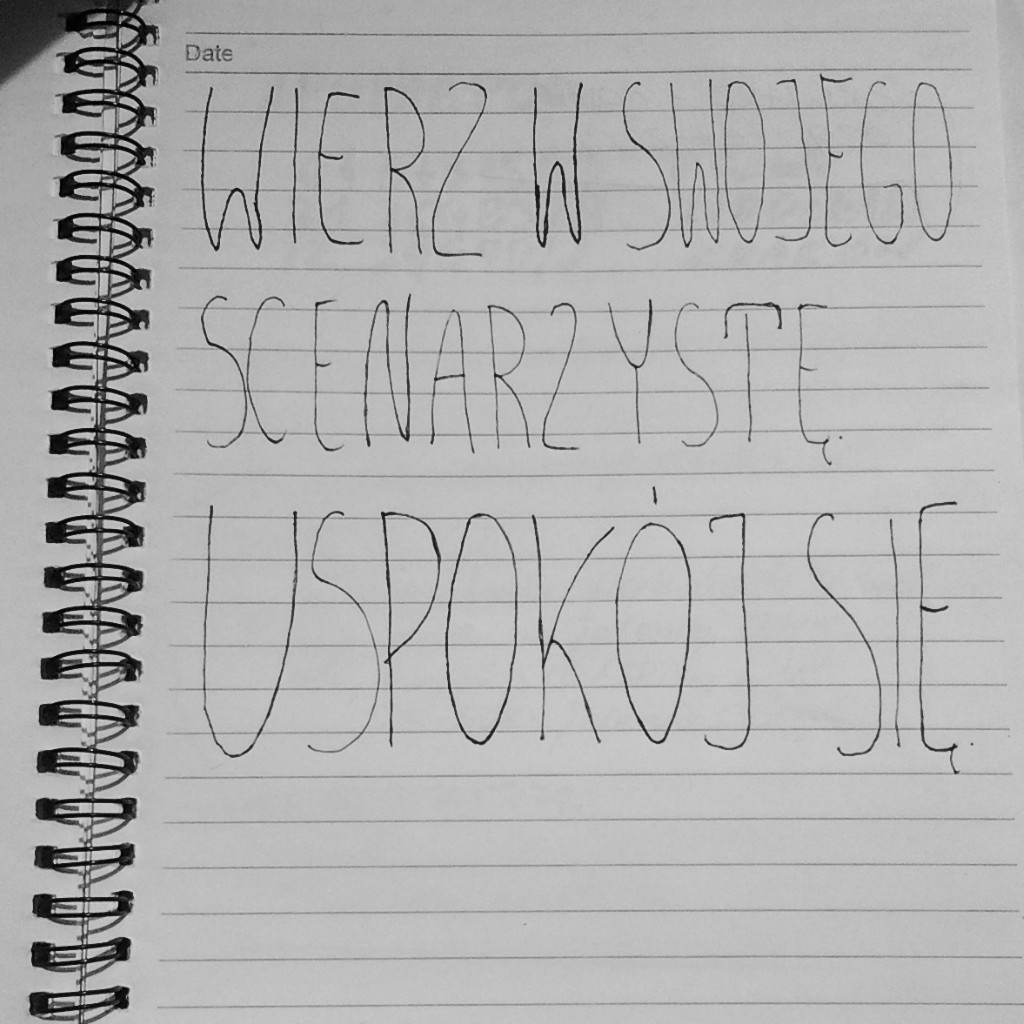 Date
WIERZ W SWOJEGO
SCENARZYSTĘ.
USPOKÓJ SIĘ.